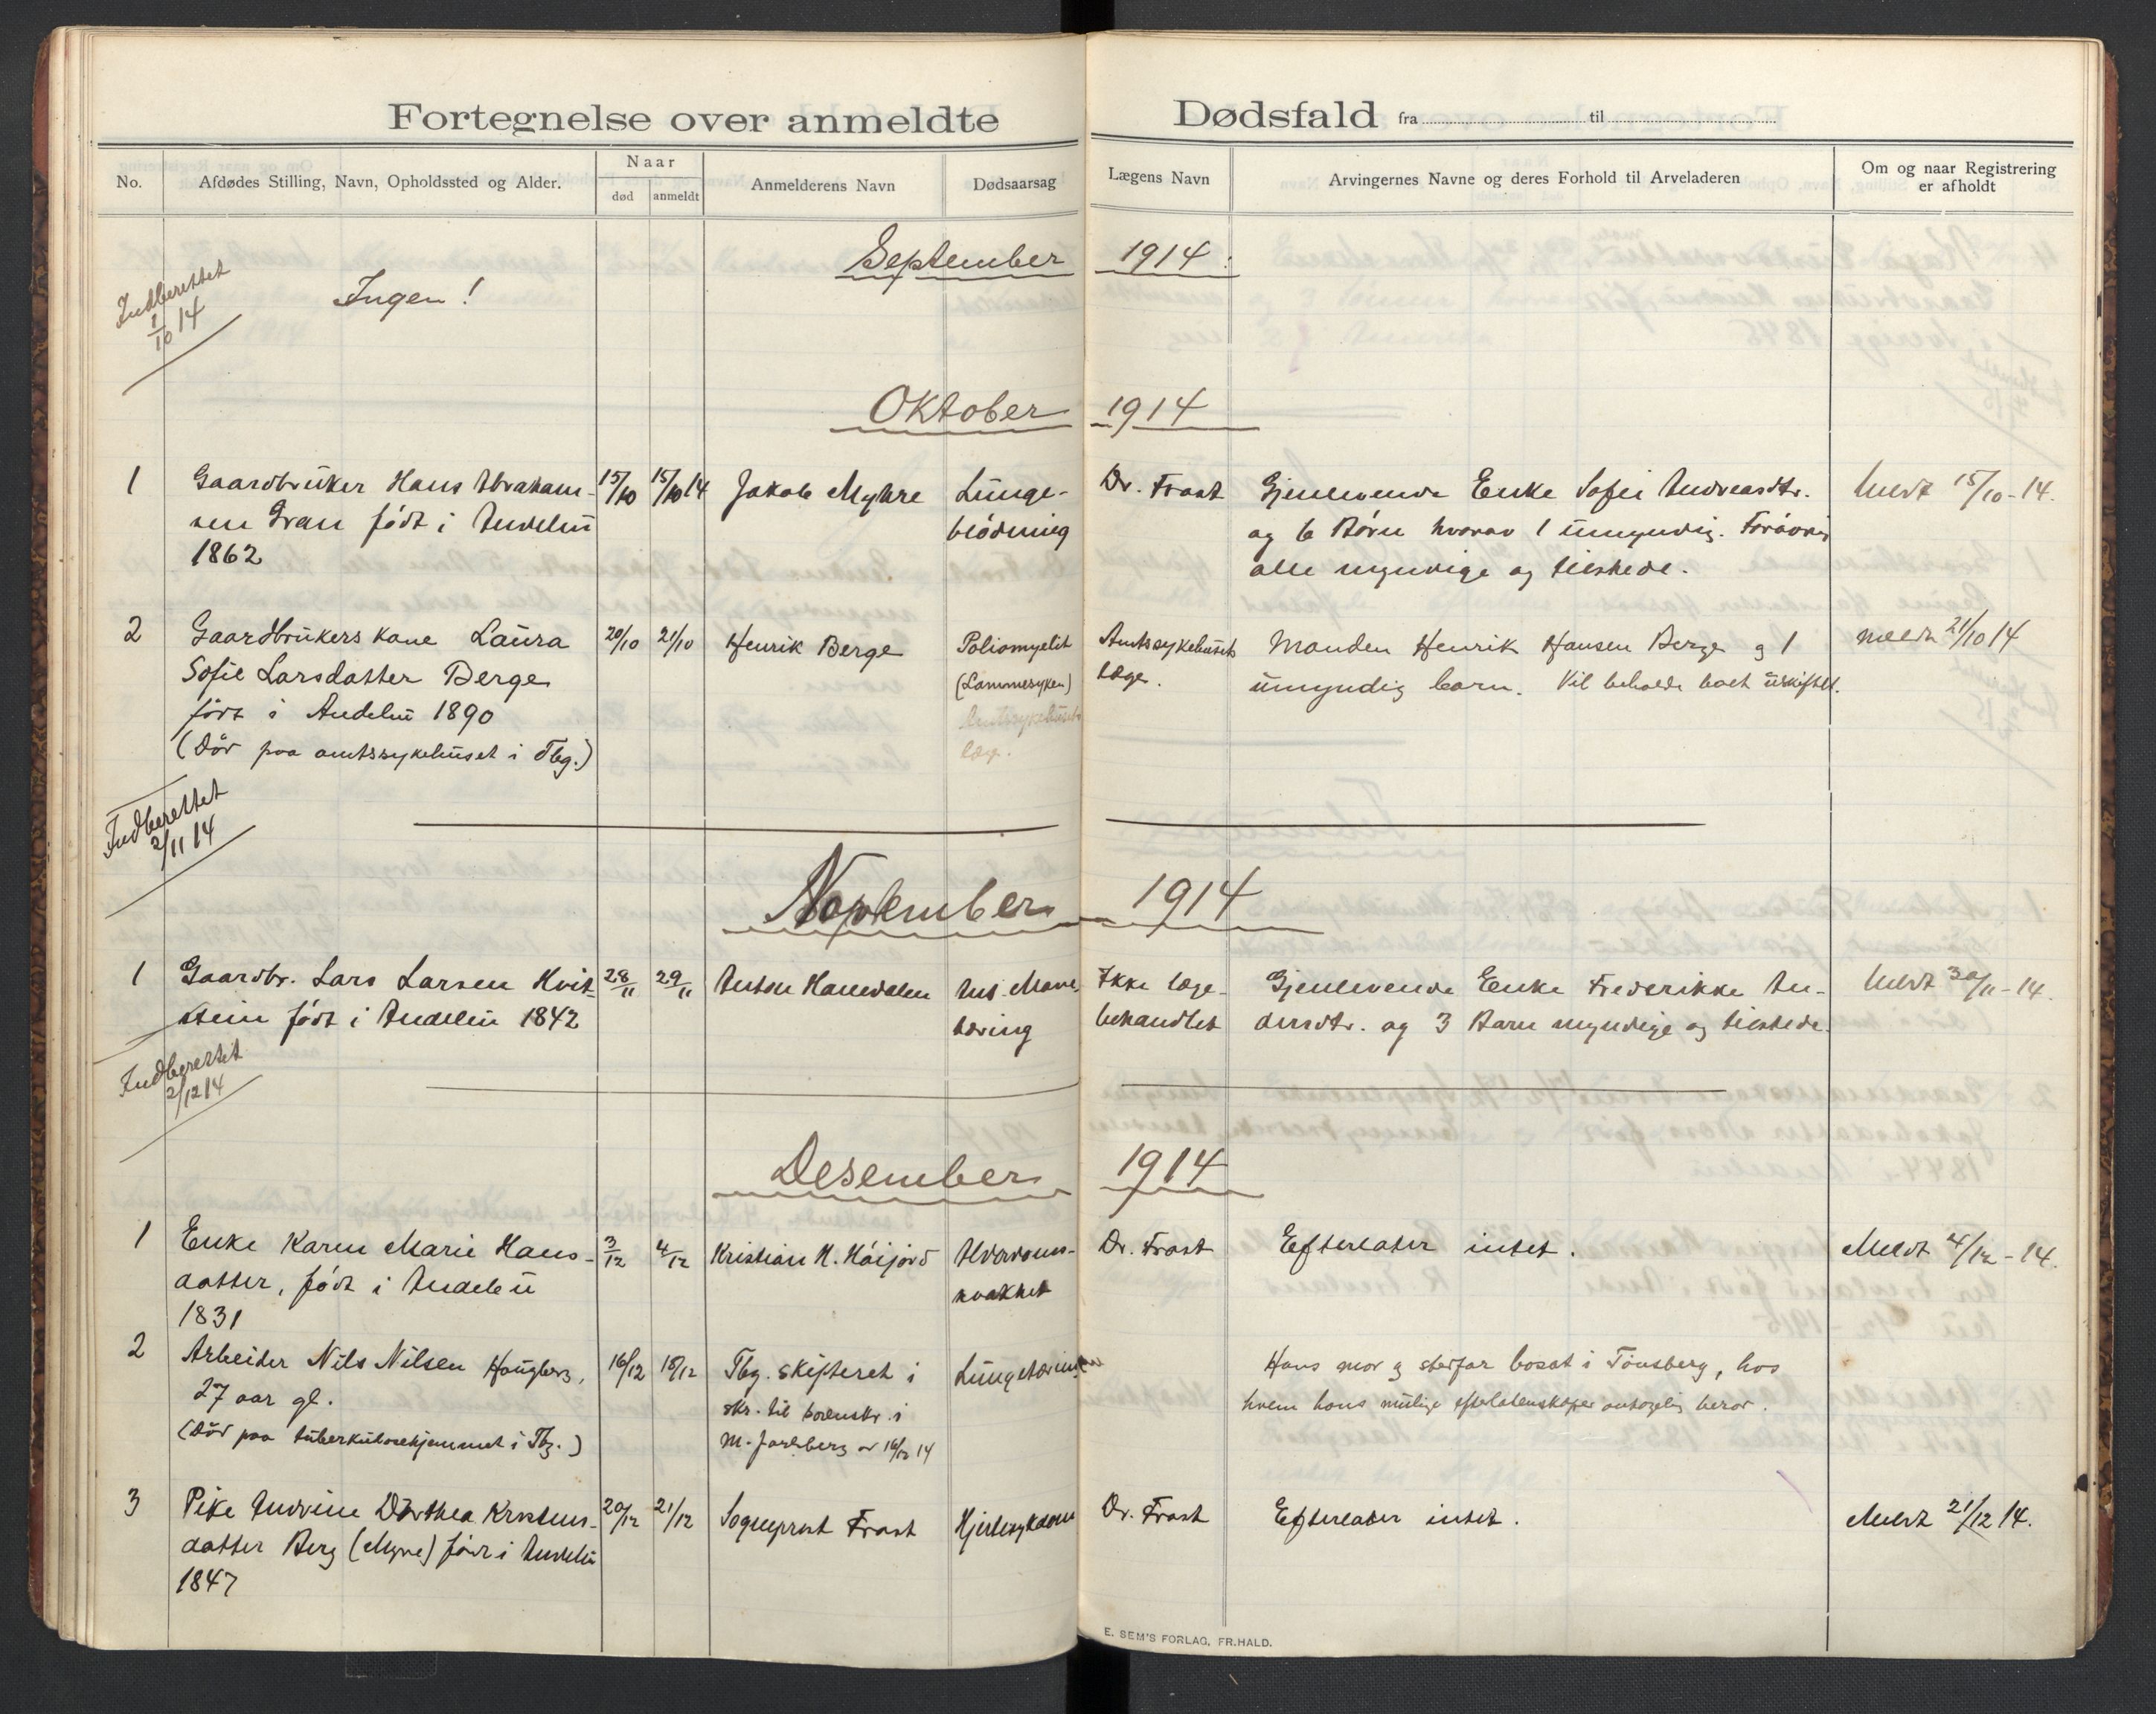 Fortegnelse over anmeldte Dødsfald fra til
No.
Afdødes Stilling, Navn, Opholdssted og Alder.
Naar
død
anmeldt
Anmelderens Navn
Dødsaarsag
Lægens Navn
Arvingernes Navne og deres Forhold til Arveladeren
Om og naar Registrering
er afholdt
September 1914.
Indberettet
1/10 14
Ingen!
Oktober 1914
1
Gaardbruker Hans Abraham-
sen Gran født i Andebu
1862
15/10
15/10 14
Jakob Myhre
Lunge-
blødning
Dr. Frost
Gjenlevende Enke Sofie Andreasdtr.
og 6 Børn hvorav 1 umyndig. Forøvrig
alle myndige og tilstede.
Meldt 15/10-14.
2
Gaardbrukers kone Laura
Sofie Larsdatter Berge
født i Andebu 1890
(Dør paa amtssykehuset i Tbg.)
20/10
21/10
Henrik Berge
Poliomyelit
(Lammesyken)
Amtssykehusets
læge.
Amtssykehusets
læge.
Manden Henrik Hansen Berge og 1
umyndig barn. Vil beholde boet uskiftet.
Meldt 21/10 14
Indberettet
2/11 14
November 1914
1
Gaardbr. Lars Larsen Hvit-
stein født i Andebu 1842
28/11
29/11
Anton Hanedalen
Ant. Mave-
tæring
Ikke læge-
behandlet
Gjenlevende Enke Frederikke An-
dersdtr. og 3 Barn myndige og tilstede.
Meldt 30/11-14.
Indberettet
2/12 14
Desember 1914
1
Enke Karen Marie Hans-
datter, født i Andebu
1831
3/12
4/12
Kristian H. Høijord
Alderdoms-
svakhet
Dr. Frost
Efterlater intet.
Meldt 4/12-14.
2
Arbeider Nils Nilsen Haugberg,
27 aar gl.
(Dør paa tuberkulosehjemmet i Tbg.)
16/12
18/12
Tbg. skifteret i
skr. til sorenskr. i
M. Jarlsberg av 16/12 14
Lungetæring
Hans mor og stefar bosat i Tønsberg, hos
hvem hans mulige efterladenskaper antagelig beror.
3
Pike Andrine Dorthea Kristens-
datter Berg (Myre) født i Andebu
1847
20/12
21/12
Sogneprest Frost
Hjertesykdom
Dr. Frost
Efterlater intet.
Meldt 21/12 14.
E. SEM'S FORLAG, FR.HALD.